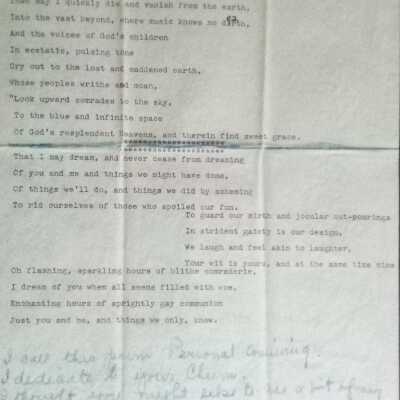 may I quickly die and vanish from the earth,
Into the vast beyond, where music knows no dirth,
And the voices of God's children
In ecstatic, pulsing tone
Cry out to the lost and maddened earth,
Whose peoples writhe and moan,
"Look upward comrades to the sky,
To the blue and infinite space
Of God's resplendent Heavens, and therein find sweet grace.
That I may dream, and never cease from dreaming
Of you and me and things we might have done,
Of things we'll do, and things we did by scheming
To rid ourselves of those who spoiled our fun.
To guard our mirth and jocular out-pourings
In strident gaiety is our design,
We laugh and feel akin to laughter,
Your wit is yours, and at the same time mine
Oh flashing, sparkling hours of blithe comraderie,
I dream of you when all seems filled with woe,
Enchanting hours of sprightly gay communion
Just you and me, and things we only, know.
I call this poem Personal
I dedicate to your
I thought you might like to see a bit of my